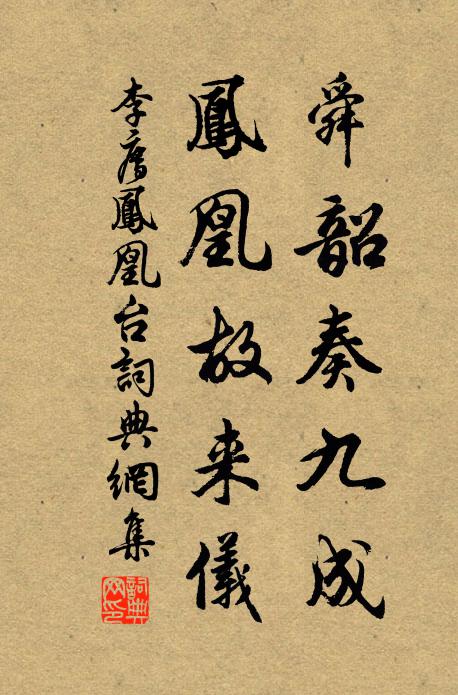 舜韶奏九成
鳳凰故来儀
李廌鳳凰台詞典網集
詞典网印